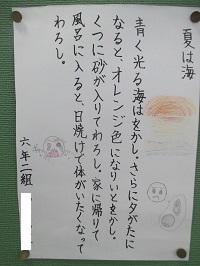 夏は海
青く光る海はをかし。さらに夕がたに
なると、オレンジ色になりいとをかし。
くつに砂が入りてわろし。家に帰りて
風呂に入ると、日焼けで体がいたくなって
わろし。
六年二組